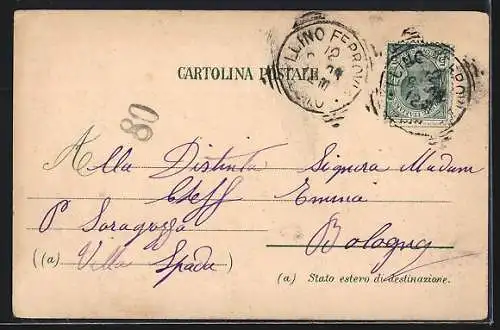 LLINO FERROV
12
CARTOLINA POSTALE.
80
Alla Distinta Signora Madame
Emma
P Saragozza
Bologna
((a) Villa Spada)
(a) Stato estero di destinazione.